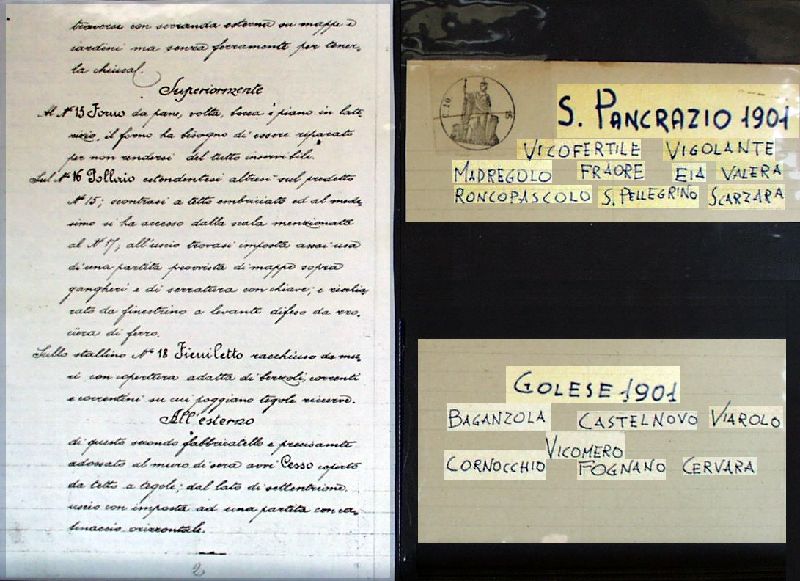 traverse con serranda esterna su mappe e
cardini ma senza ferramenti per tener-
la chiusa.
Superiormente
Al Nº 15 Forno da pane, volta, bocca e piano in late-
rizio, il forno ha bisogno di essere riparato
per non rendersi del tutto inservibile.
Sul Nº 16 Pollaio estendentesi altresì sul predetto
Nº 15; scontrasi a tetto embriciato ed al mede-
simo si ha accesso dalla scala menzionata
al Nº 17; all'uscio trovasi imposta assai usa
di una partita provvista di mappe sopra
gangheri e di serrattura con chiave; e rischia-
rato da finestrino a levante difeso da cro-
ciera di ferro.
Sullo stallino Nº 18 Fieniletto racchiuso da mu-
ri con copertura adatta di correnti
e correntini su cui poggiano tegole ricurve.
All'esterno
di questo secondo fabbricatello e precisamte
adossato al muro di sera avvi Cesso coperto
da tetto a tegole; dal lato di settentrione
uscio con imposta ad una partita con ca-
tinaccio orizzontale.
2
S. PANCRAZIO 1901
VICOFERTILE VIGOLANTE
MADREGOLO FRAORE EIA VALERA
RONCOPASCOLO S. PELLEGRINO SCARZARA
GOLESE 1901
BAGANZOLA CASTELNOVO VIAROLO
VICOMERO
CORNOCCHIO FOGNANO CERVARA